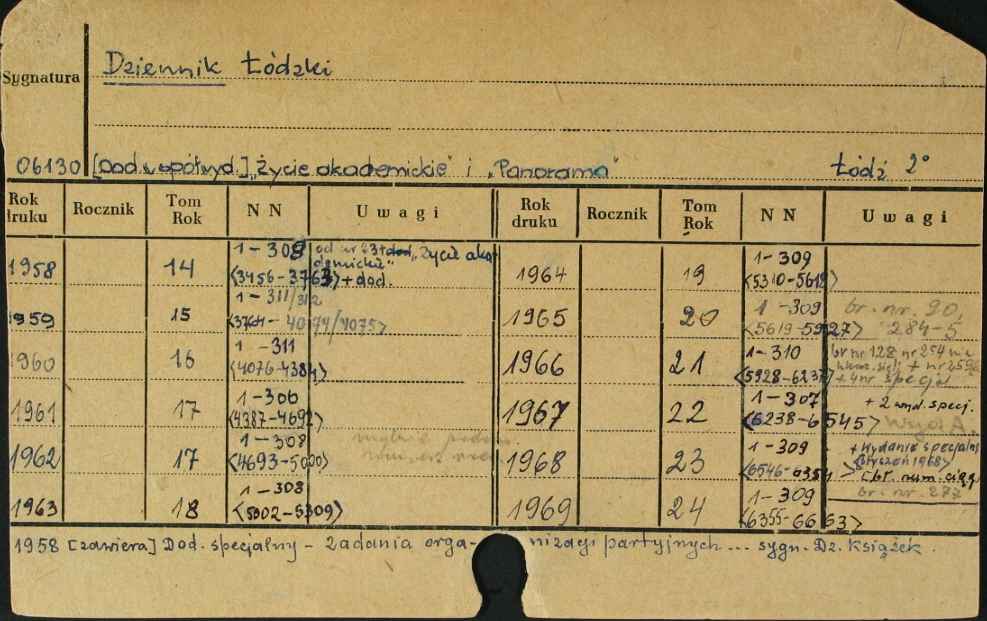 Sygnatura Dziennik Łódzki
06130 [Dod. współwyd.] „Życie akademickie" i „Panorama" Łódź 2°
Rok druku Rocznik Tom Rok NN Uwagi Rok druku Rocznik Tom Rok NN Uwagi
1958 14 1-308 <3456-3763> + dod. od nr 3+dod. „Życie akademickie" 1964 19 1-309 <5310-5618>
1959 15 1-311/312 <3764-4074/4075> 1965 20 1-309 <5619-5927> br. nr. 90, 284-5
1960 16 1-311 <4076-4384> 1966 21 1-310 <5928-6237> br nr 128 nr 254 nie + nr 259 + 4 nr specjal
1961 17 1-306 <4387-4692> 1967 22 1-307 <6238-6545> + 2 wyd. specj. Wyd A.
1962 17 1-308 <4693-5000> 1968 23 1-309 <6546-6354> + wydanie specjalne <styczeń 1968> br. num. ciąg.
1963 18 1-308 <5002-5309> 1969 24 1-309 <6355-6663> br. nr. 277
1958 [zawiera] Dod. specjalny - zadania organizacji partyjnych... sygn. Dz. Książek.